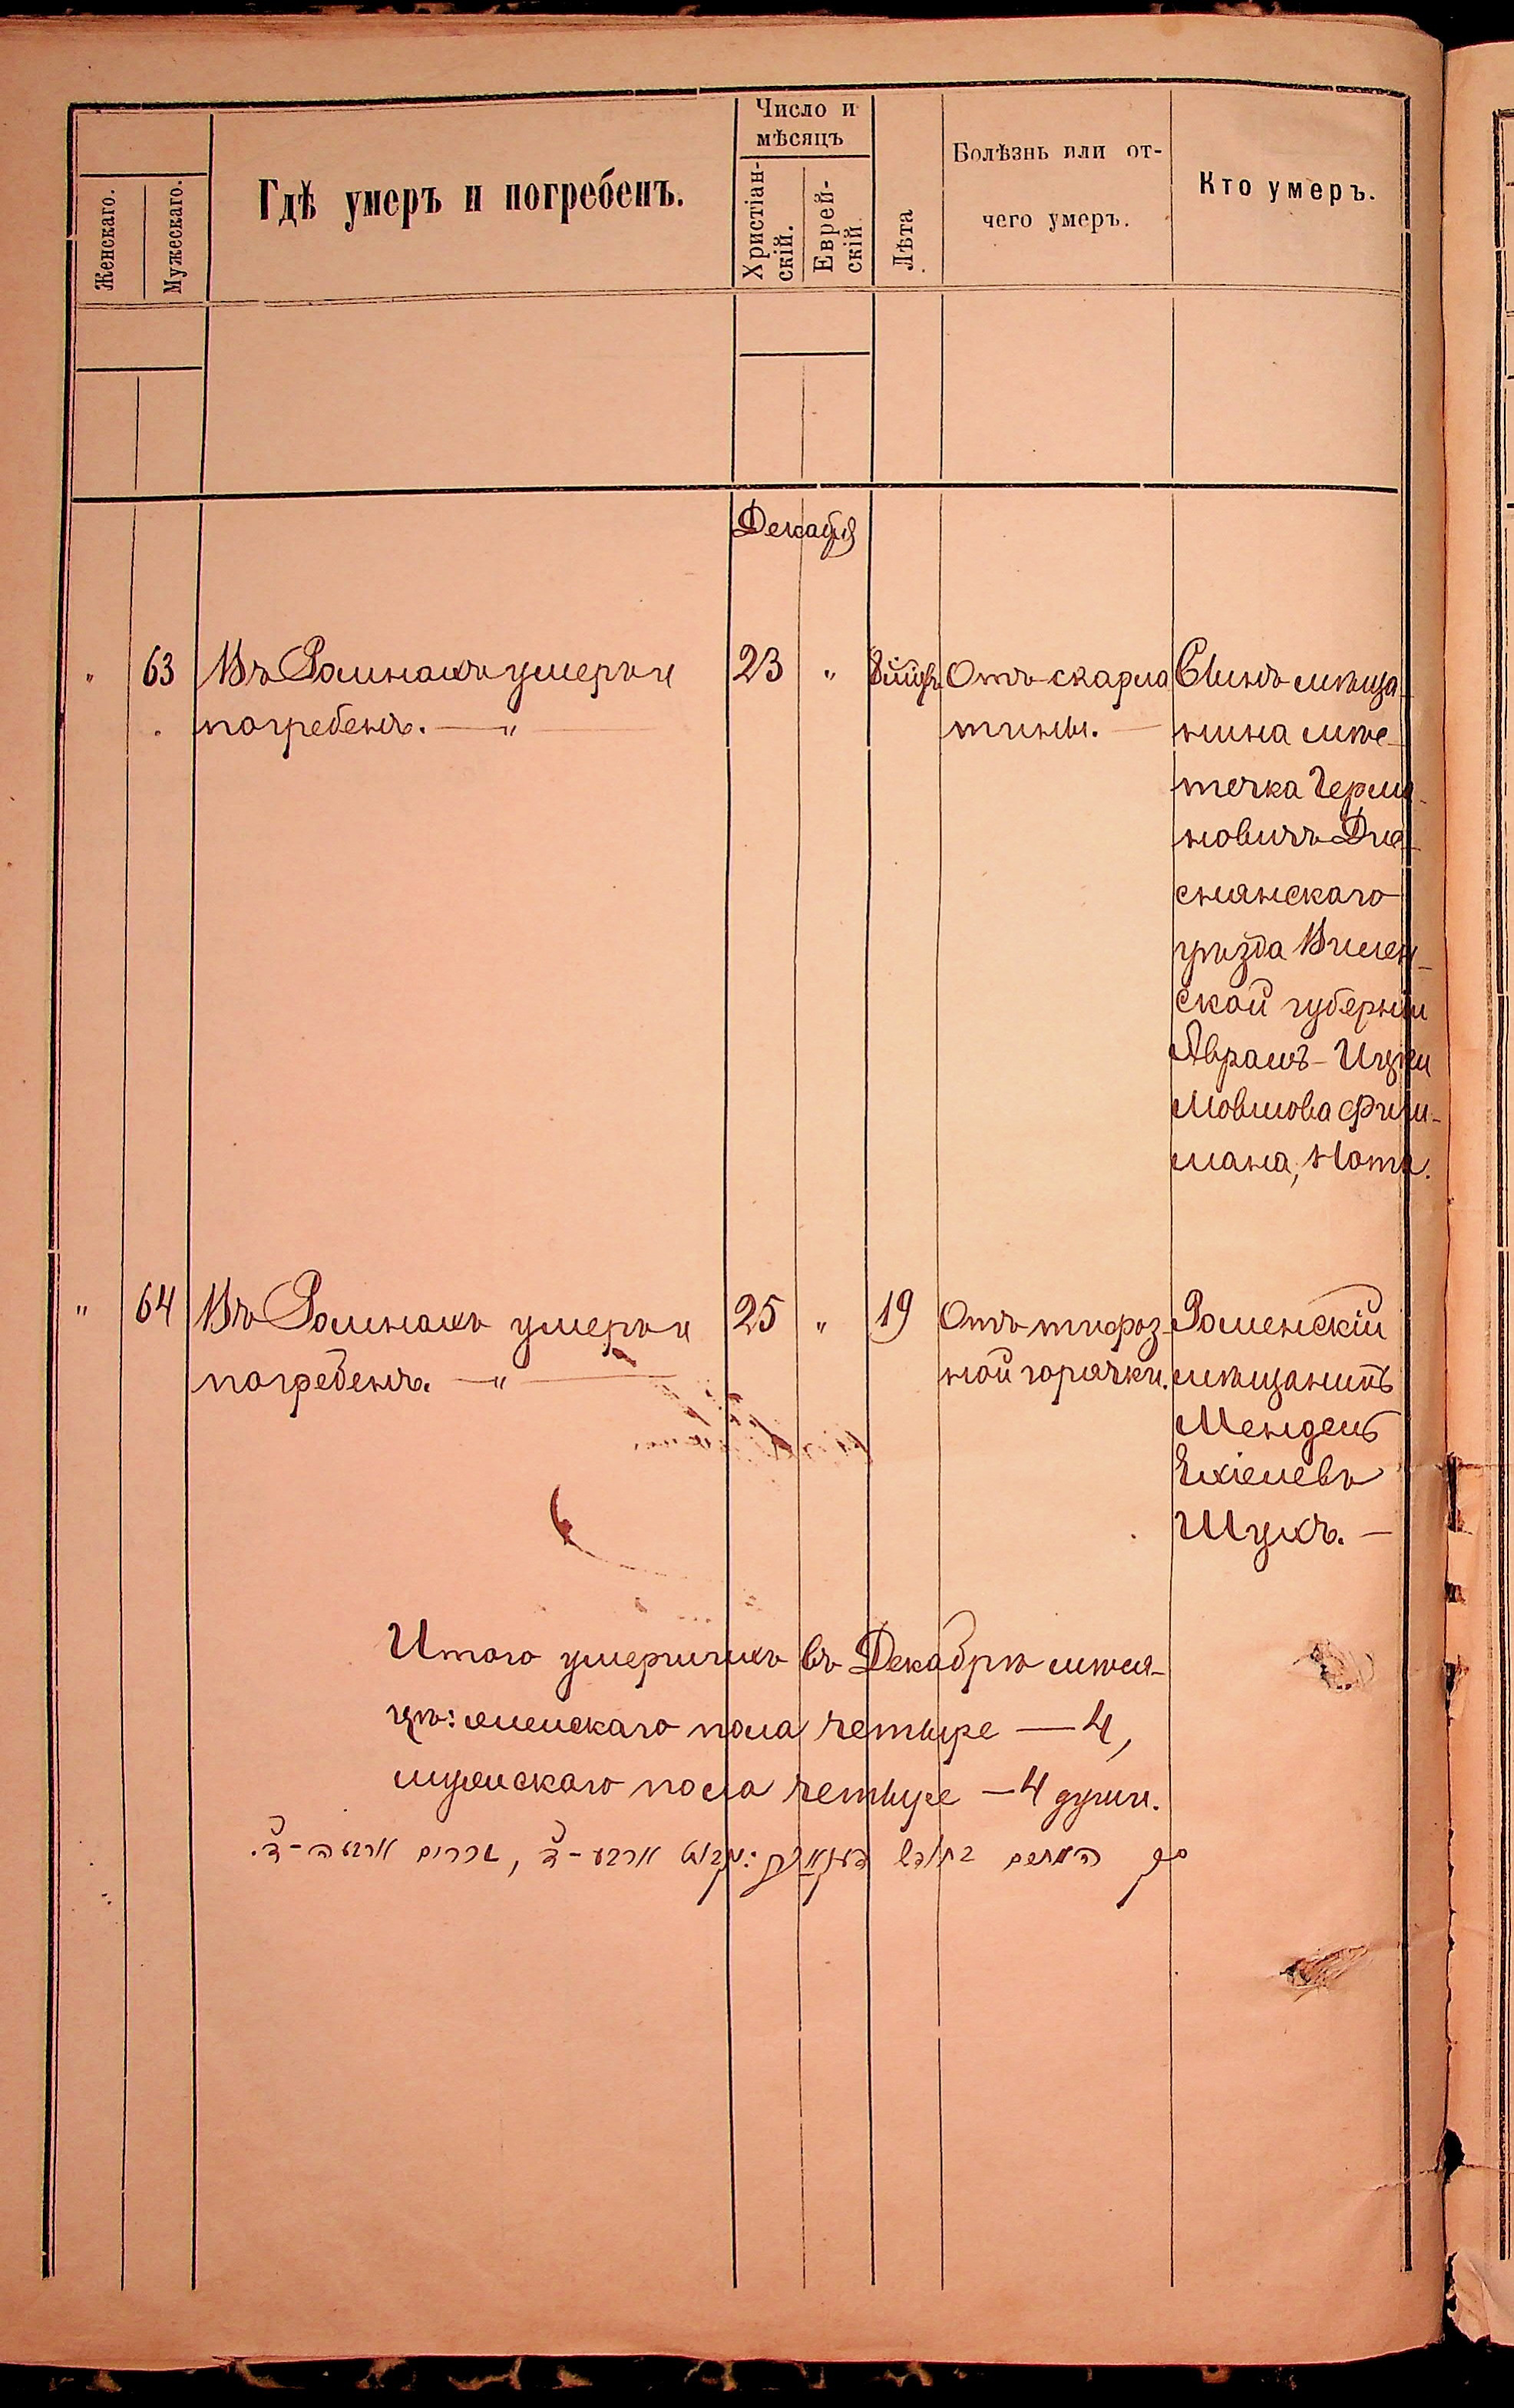 Женскаго.
Мужескаго.
Гдѣ умеръ и погребенъ.
Число и
мѣсяцъ
Христіан-
скій.
Еврей-
скій
Лѣта
Болѣзнь или от-
чего умеръ.
Кто умеръ.
Декабря
" 63 Въ Ромнахъ умеръ и 23 " Отъ скарла
погребенъ. — "
тины. —
Сынъ мѣща-
нина мѣс-
течка Герма-
новичъ Дис-
снянскаго
уѣзда Вилен-
ской губерніи
Абрамъ-Ицки
Мовшова
мана, Нота.
" 64 Въ Ромнахъ умеръ и 25 " 19 Отъ тифоз-
погребенъ. — "
ной горячки.
Роменскій
мѣщанинъ
Мендель
Ехіелевъ
Шукъ. —
Итого умершихъ въ Декабрѣ мѣся-
цѣ: женскаго пола четыре — 4,
мужскаго пола четыре — 4 души.